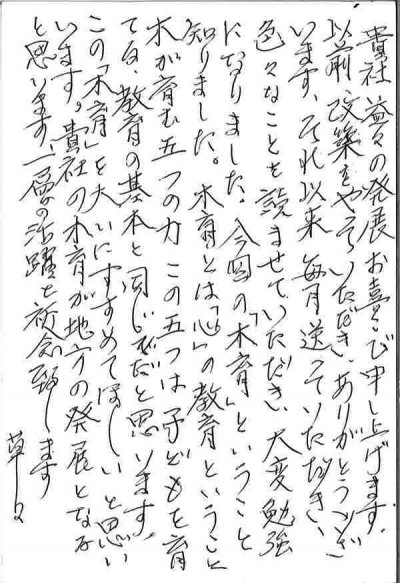 貴社 益々の発展お喜び申し上げます。
以前、改築をやっていただき、ありがとうござ
います、それ以来 毎月送っていただき、
色々なことを読ませていただき、大変勉強
になりました。今回の「木育」ということ
知りました。木育とは「心」の教育ということ
木が育む五つの力 この五つは子どもを育
てる、教育の基本と同じだと思います。
この「木育」を大いにすすめてほしいと思い
います。貴社の木育が地方の発展となる
と思います、一層の活躍を祈念致します
草々